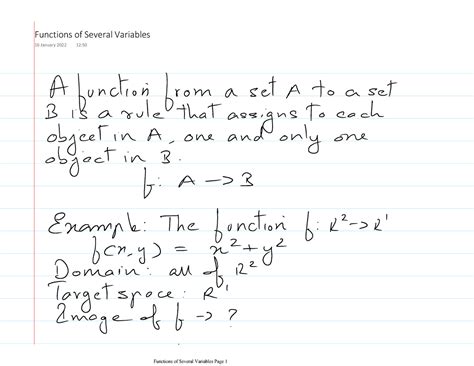 Functions of Several Variables
18 January 2022 12:50
A function from a set A to a set
B is a rule that assigns to each
object in A, one and only one
object in B.
f: A → B
Example: The function f: R² → R¹
f(x,y) = x² + y²
Domain: all of R²
Target space: R¹
Image of f → ?
Functions of Several Variables Page 1